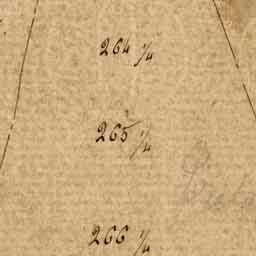 264 1/4
265 1/4
266 1/4